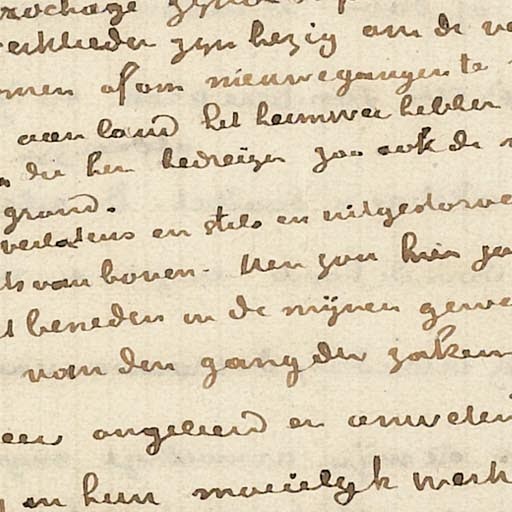 erklieden zyn bezig om de
omen of om nieuwe gangen te
aan land het heimwee hebben
die hen bedreigen zoo ook de
grond.
verlatens en stils en uitgestorve
ts van boven. Men zou hier
t beneden in de mijnen gewe
van den gang der zaken
zeer ongeleerd en onweten
en hun moeielyk werk